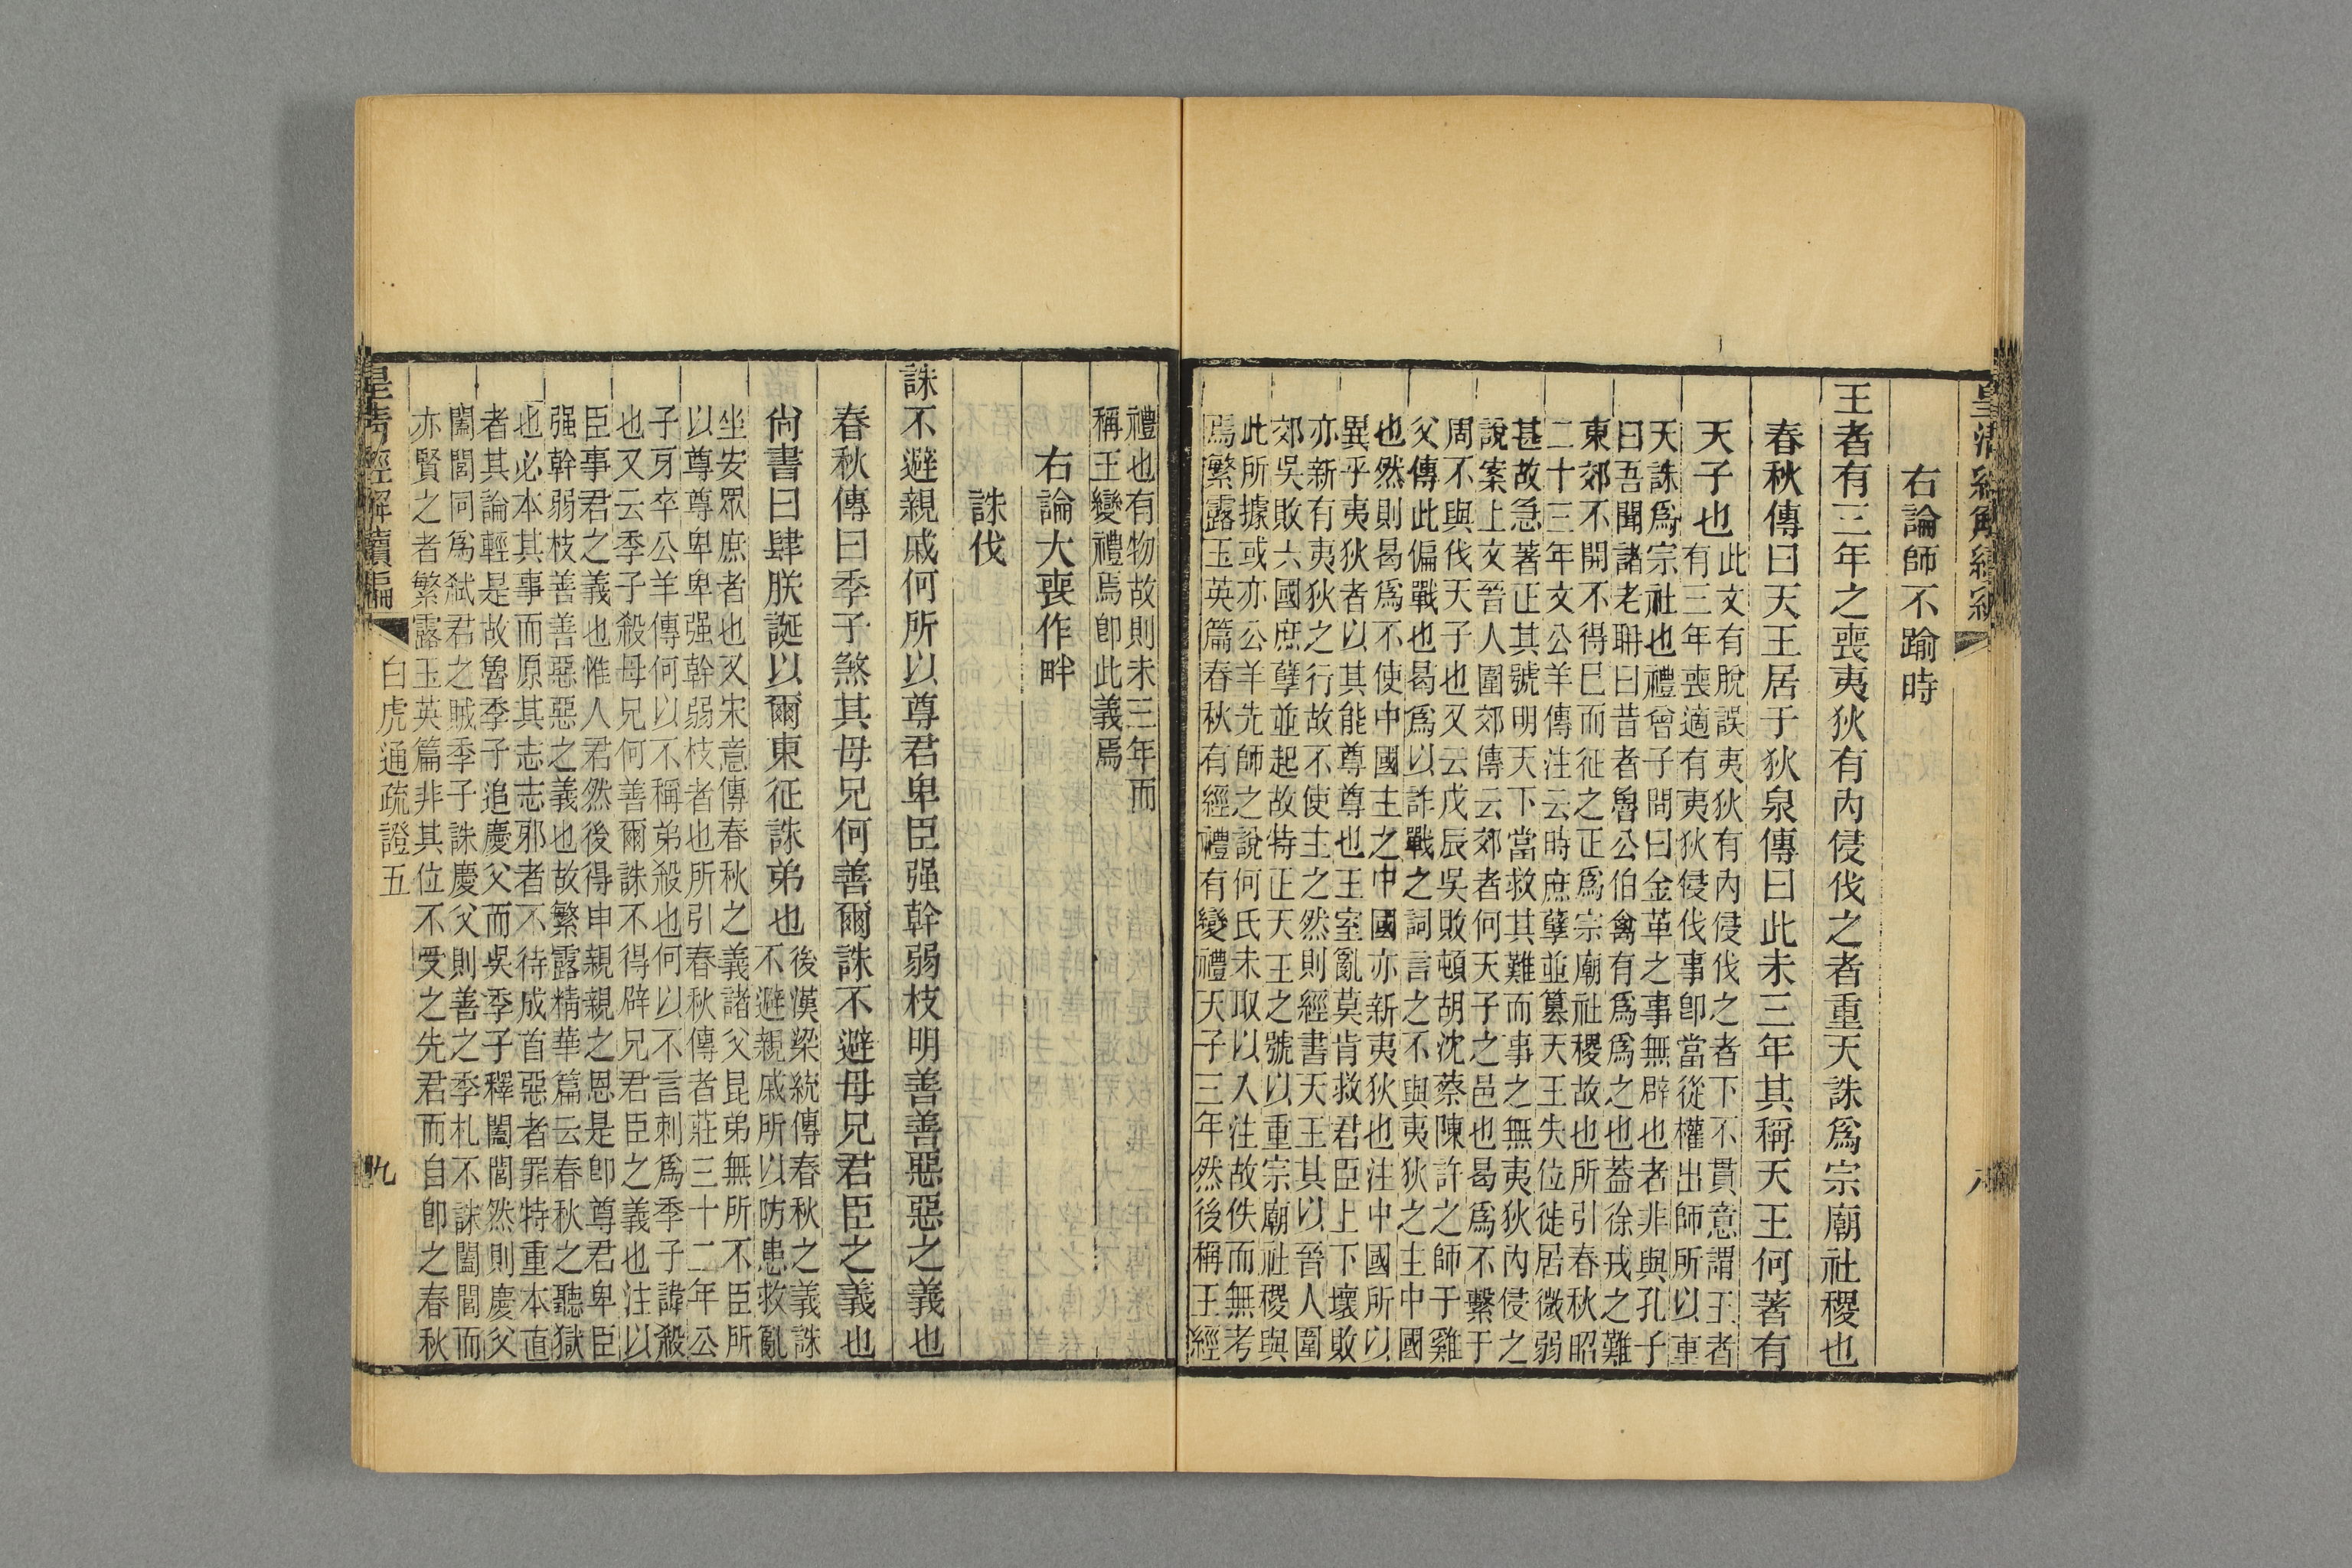 右論師不踰時
王者有三年之喪夷狄有內侵伐之者重天誅爲宗廟社稷也
春秋傳曰天王居于狄泉傳曰此未三年其稱天王何著有
天子也
此文有脫誤夷狄有內侵伐之者下不貫意謂王者
有三年喪適有夷狄侵伐事卽當從權出師所以重
天誅爲宗社也禮曾子問曰金革之事無辟也者非與孔子
曰吾聞諸老聃曰昔者魯公伯禽有爲爲之也蓋徐戎之難
東郊不開不得已而征之正爲宗廟社稷故也所引春秋昭
二十三年文公羊傳注云時庶孽並篡天王失位徙居微弱
甚故急著正其號明天下當救其難而事之無夷狄內侵之
說案上文晉人圍郊傳云郊者何天子之邑也曷爲不繫于
周不與伐天子也又云戊辰吳敗頓胡沈蔡陳許之師于雞
父傳此偏戰也曷爲以詐戰之詞言之不與夷狄之主中國
也然則曷爲不使中國主之中國亦新夷狄也注中國所以
異乎夷狄者以其能尊尊也王室亂莫肯救君臣上下壞敗
亦新有夷狄之行故不使主之然則經書天王其以晉人圍
郊吳敗六國庶孽並起故特正天王之號以重宗廟社稷與
此所據或亦公羊先師之說何氏未取以入注故佚而無考
焉繁露玉英篇春秋有經禮有變禮天子三年然後稱王經
禮也有物故則未三年而
稱王變禮焉卽此義焉
右論大喪作畔
誅伐
誅不避親戚何所以尊君卑臣强幹弱枝明善善惡惡之義也
春秋傳曰季子煞其母兄何善爾誅不避母兄君臣之義也
尚書曰肆朕誕以爾東征誅弟也
後漢梁統傳春秋之義誅
不避親戚所以防患救亂
坐安眾庶者也又宋意傳春秋之義諸父昆弟無所不臣所
以尊尊卑卑强幹弱枝者也所引春秋傳者莊三十二年公
子牙卒公羊傳何以不稱弟殺也何以不言刺爲季子諱殺
也又云季子殺母兄何善爾誅不得辟兄君臣之義也注以
臣事君之義也惟人君然後得申親親之恩是卽尊君卑臣
强幹弱枝善善惡惡之義也故繁露精華篇云春秋之聽獄
也必本其事而原其志志邪者不待成首惡者罪特重本直
者其論輕是故魯季子追慶父而吳季子釋闔閭然則慶父
闔閭同爲弒君之賊季子誅慶父則善之季札不誅闔閭而
亦賢之者繁露玉英篇非其位不受之先君而自卽之春秋
皇清經解續編
白虎通疏證五
九